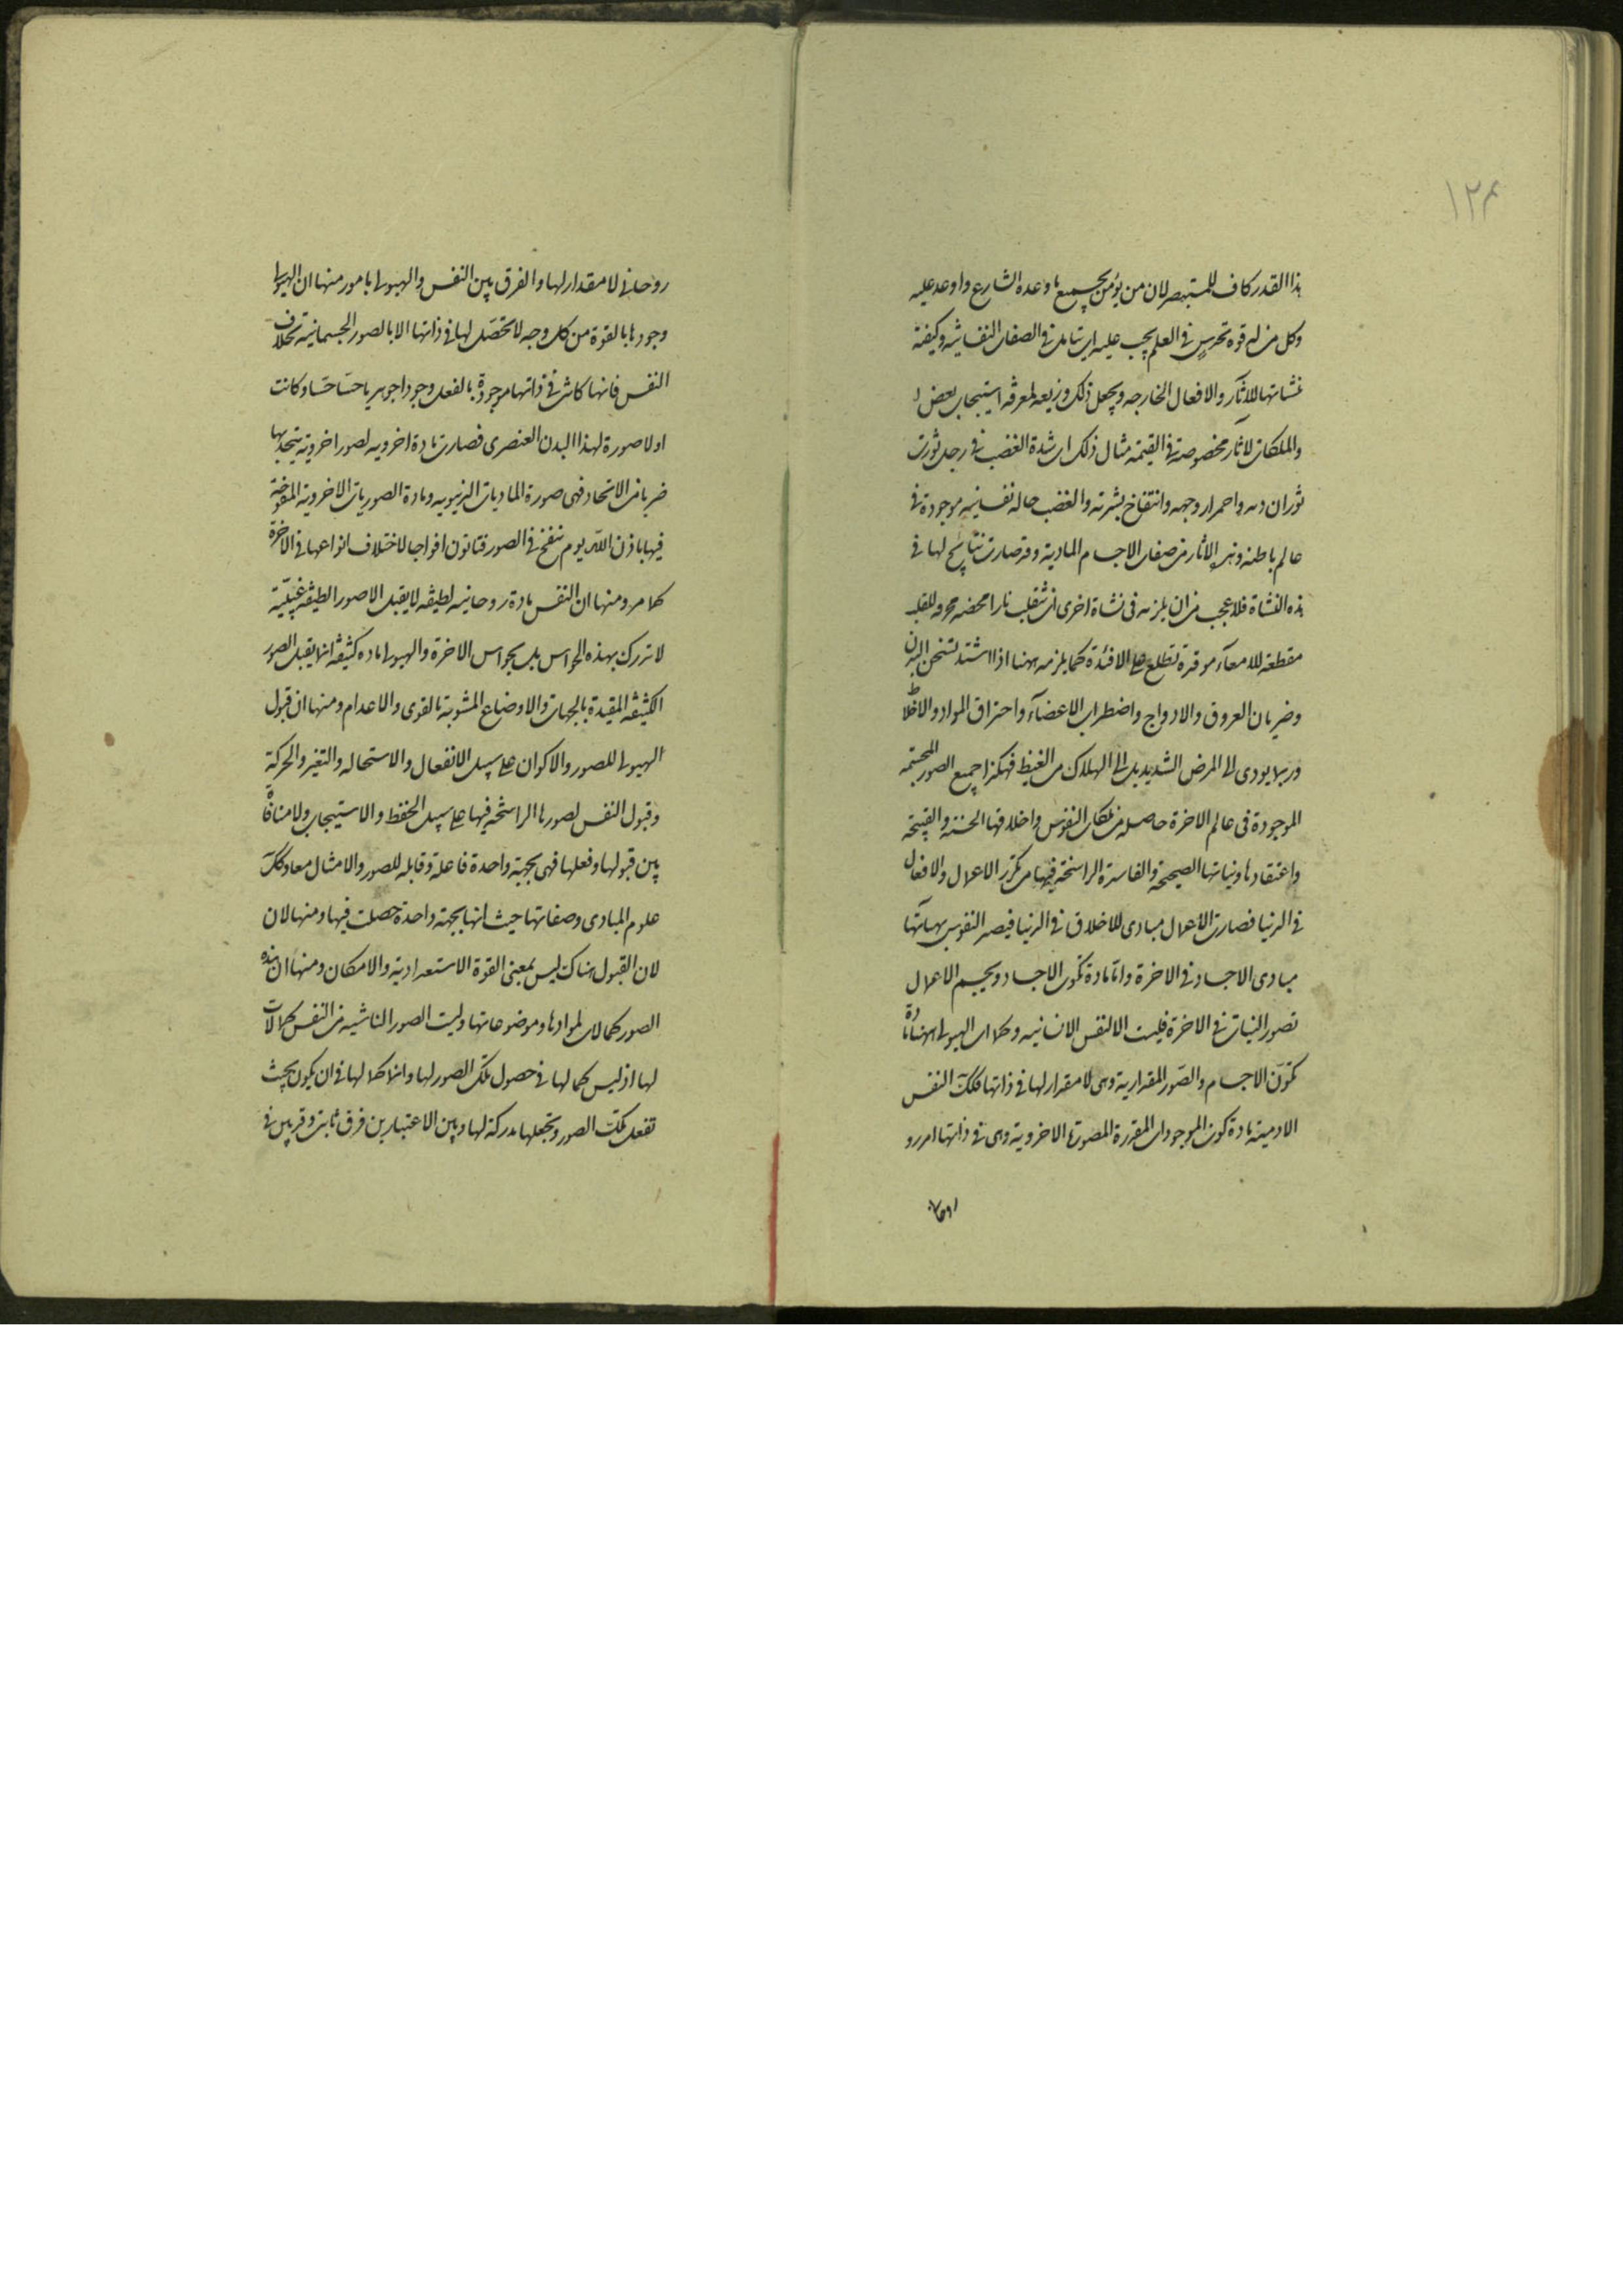 ۱۲۴
هذا القدر كاف للمستبصر لان من يؤمن بجميع ما وعده الشارع واوعد عليه
وكل من له قوة تحدس فى العلم يجب عليه ان يتامل فى الصفات النفسانيه وكيفية
نشاتها للاثار والافعال الخارجه ويجعل ذلك ذريعه لمعرفه استيجاب بعض
والملكات لاثار مخصوصة فى القيمة مثال ذلك ان شدة الغضب فى رجل ثورت
ثوران دمه واحمرار وجهه وانتفاخ بشرته والغضب حاله نفسانيه موجودة فى
عالم باطنه وهذه الاثار من صفات الاجسام المادية وقد صارت نتايج لها فى
هذه النشاة فلا عجب من ان يلزمه فى نشاة اخرى ان تنقلب نارا محضه محرقه للقلب
مقطعة للامعآء موقدة تطلع على الافئدة كما يلزمه ههنا اذا اشتد تسخن البدن
وضربان العروق والادواج واضطراب الاعضآء واحتراق المواد والاخلاط
وربما يودى الى المرض الشديد بل الى الهلاك من الغيظ فهكذا جميع الصور المجسمه
الموجودة فى عالم الاخرة حاصله من ملكات النفوس واخلاقها الحسنة والقبيحة
واعتقادها ونياتها الصحيحة والفاسدة الراسخة فيها من تكرر الاعمال والافعال
فى الدنيا فصارت الاعمال مبادى للاخلاق فى الدنيا فيصير النفوس بهيآتها
مبادى الاجساد فى الاخرة واما مادة تكون الاجساد وتجسم الاعمال
تصور النيات فى الاخرة فليست الا النفس الانسانيه وكما ان الهيولى ههنا مادة
تكوّن الاجسام والصّور المقدارية وهى لا مقدار لها فى ذاتها فكك النفس
الادمية مادة كون الموجودات المقدرة المصورة الاخروية وهى فى ذاتها امر رو
روحانى
روحانى لا مقدار لها والفرق بين النفس والهيولى بامور منها ان الهيولى
وجودها بالقوة من كل وجه لا تحصّل لها فى ذاتها الا بالصور الجسمانية بخلاف
النفس فانها كانت فى ذاتها موجودة بالفعل وجودا جوهريا حسّاسا وكانت
اولا صورة لهذا البدن العنصرى فصارت مادة اخرويه لصور اخروية يتحد بها
ضربا من الاتحاد فهى صورة الماديات الدنيويه ومادة الصوريات الاخروية المنفوخة
فيها باذن اللّه يوم ينفخ فى الصور فتاتون افواجا لاختلاف انواعها فى الاخرة
كما مر ومنها ان النفس مادة روحانيه لطيفه لا يقبل الا صورا لطيفه غيبيّة
لا تدرك بهذه الحواس بل بحواس الاخرة والهيولى ماده كثيفه انما يقبل الصور
الكثيفه المقيدة بالجهات والاوضاع المشوبة بالقوى والاعدام ومنها ان قبول
الهيولى للصور والاكوان على سبيل الانفعال والاستحاله والتغير والحركة
وقبول النفس لصورها الراسخة فيها على سبيل الحفظ والاستيجاب ولا منافاة
بين قبولها وفعلها فهى بجهة واحدة فاعلة وقابله للصور والامثال معا وكك
علوم المبادى وصفاتها حيث انها بجهة واحدة حصلت فيها ومنها لان
لان القبول هناك ليس بمعنى القوة الاستعدادية والامكان ومنها ان هذه
الصور كمالات لموادها وموضوعاتها وليست الصور الناشيه من النفس كمالات
لها اذ ليس كمالها فى حصول تلك الصور لها وانما كمالها فى ان يكون بحيث
تفعل تلك الصور وتجعلها مدركة لها وبين الاعتبارين فرق ثابت وقد بين فى